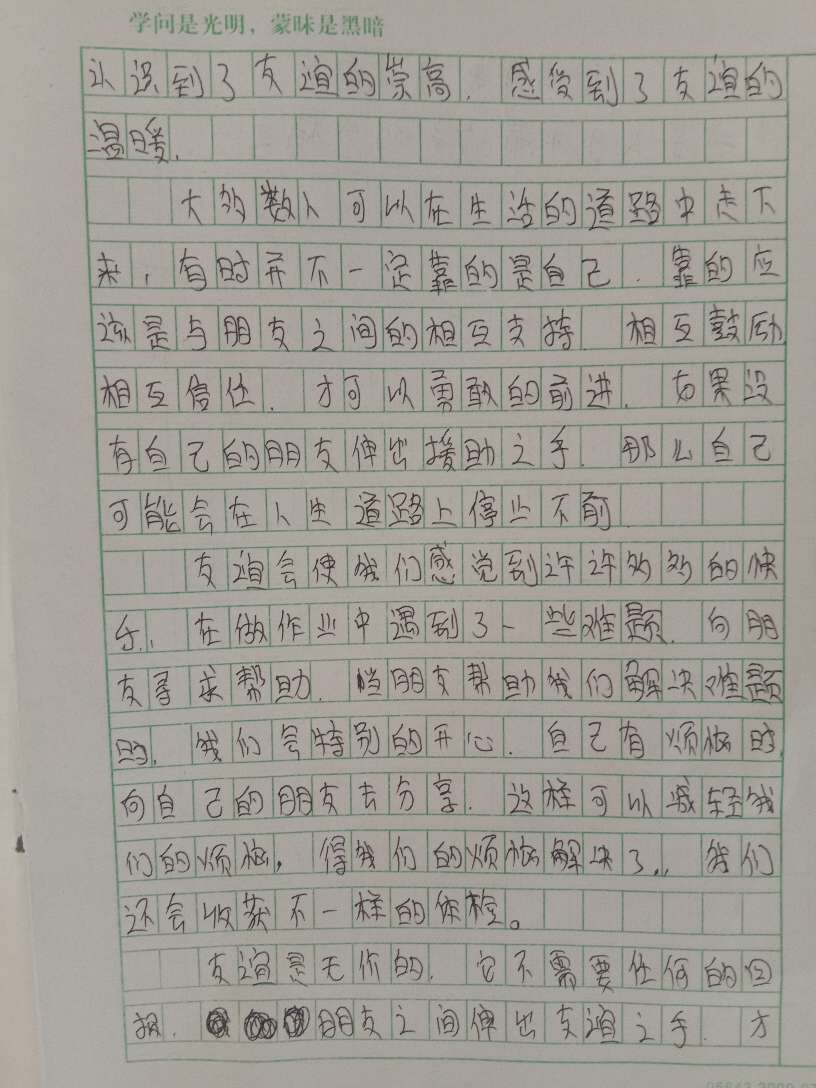 学问是光明，蒙昧是黑暗
认识到了友谊的崇高．感受到了友谊的
温暖．
大多数人可以在生活的道路中走下
来，有时并不一定靠的是自己．靠的应
该是与朋友之间的相互支持 相互鼓励
相互信任．才可以勇敢的前进．如果没
有自己的朋友伸出援助之手．那么自己
可能会在人生道路上停止不前
友谊会使我们感觉到许许多多的快
乐．在做作业中遇到了一些难题．向朋
友寻求帮助．当朋友帮助我们解决难题
时．我们会特别的开心．自己有烦恼时．
向自己的朋友去分享．这样可以减轻我
们的烦恼，得我们的烦恼解决了．我们
还会收获不一样的体检。
友谊是无价的．它不需要任何的回
报．朋友之间伸出友谊之手．才